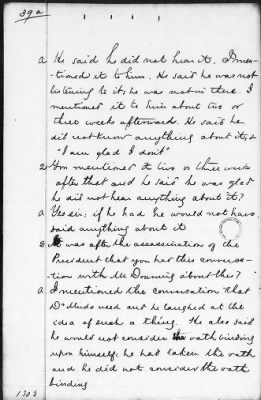 39a
a He said he did not hear it. I men-
tioned it to him. He said he was not
listening to it; he was not in there. I
mentioned it to him about two or
three weeks afterward. He said he
did not know anything about it, &
"I am glad I don't"
2 You mentioned it two or three weeks
after that and he said he was glad
he did not hear anything about it?
a Yes sir; if he had he would not have
said anything about it
2 It was after the assassination of the
President that you had this conversa-
tion with Mr Downing about this?
a I mentioned the conversation that
Dr Mudd used and he laughed at the
idea of such a thing. He also said
he would not consider the oath binding
upon himself; he had taken the oath
and he did not consider the oath
binding
1305